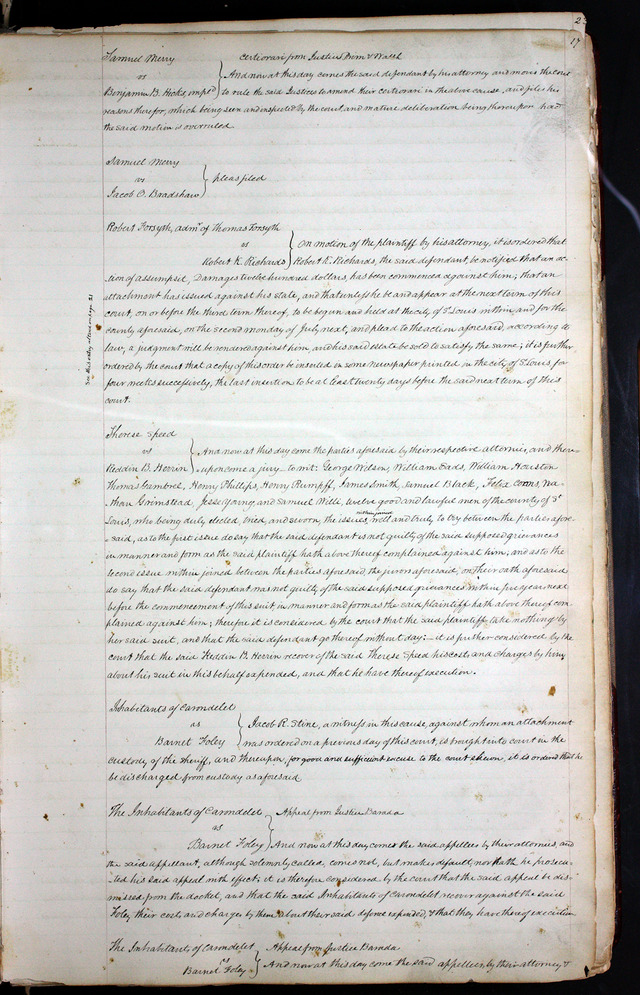 2
17
Samuel Merry certiorari from Justices Prim & Walsh
vs And now at this day comes the said defendant by his attorney and moves the court
Benjamin B. Hicks, imp'd to rule the said Justices to amend their certiorari in the above cause, and files his
reasons therefor, which being seen and inspected by the court, and mature deliberation being thereupon had
the said motion is overruled
Samuel Merry
vs pleas filed
Jacob O. Bradshaw
Robert Forsyth, admr of Thomas Forsyth
vs On motion of the plaintiff by his attorney, it is ordered that
Robert K. Richards Robert K. Richards, the said defendant, be notified that an ac-
tion of assumpsit, Damages twelve hundred dollars, has been commenced against him; that an
attachment has issued against his state, and that unless he be and appear at the next term of this
court, on or before the third term thereof, to be begun and held at the city of St Louis within and for the
county aforesaid, on the second monday of July next, and plead to the action aforesaid, according to
law, a judgment will be rendered against him, and his said estate be sold to satisfy the same; it is further
ordered by the court that a copy of this order be inserted in some newspaper printed in the city of St Louis, for
four weeks successively, the last insertion to be at least twenty days before the said next term of this
court.
See this entry altered on page 21
Therese Speed
vs And now at this day come the parties aforesaid by their respective attornies, and there
Reddin B. Herrin upon come a jury to wit: George Wilson, William Eads, William Houston
Thomas Gambrel, Henry Phillips, Henry Rumpff, James Smith, Samuel Black, Felix Coons, Na-
than Grimstead, Jesse Young, and Samuel Wille, twelve good and lawful men of the county of St
Louis, who being duly elected, tried, and sworn, the issues within joined well and truly to try between the parties afore-
said, as to the first issue do say that the said defendant is not guilty of the said supposed grievances
in manner and form as the said plaintiff hath above thereof complained against him; and as to the
second issue within joined between the parties aforesaid, the jurors aforesaid, on their oath aforesaid
do say that the said defendant was not guilty of the said supposed grievances within five years next
before the commencement of this suit in manner and form as the said plaintiff hath above thereof com
plained against him; therefore it is considered by the court that the said plaintiff take nothing by
her said suit, and that the said defendant go thereof without day:— it is further considered by the
court that the said Reddin B. Herrin recover of the said Therese Speed his costs and charges by him
about his suit in this behalf expended, and that he have thereof execution.
Inhabitants of Carondelet
vs Jacob R. Stine, a witness in this cause, against whom an attachment
Barnet Foley was ordered on a previous day of this court, is brought into court in the
custody of the sheriff, and thereupon, for good and sufficient excuse to the court shewn, it is ordered that he
be discharged from custody as aforesaid
The Inhabitants of Carondelet Appeal from Justice Barada
vs
Barnet Foley And now at this day comes the said appellees by their attornies, and
the said appellant, although solemnly called, comes not, but makes default, nor hath he prosecu-
ted his said appeal with effect; it is therefore considered by the court that the said appeal be dis-
missed from the docket, and that the said Inhabitants of Carondelet recover against the said
Foley their costs and charges by them about their said defence expended, & that they have thereof execution
The Inhabitants of Carondelet Appeal from Justice Barada
vs
Barnet Foley And now at this day come the said appellees by their attorney &